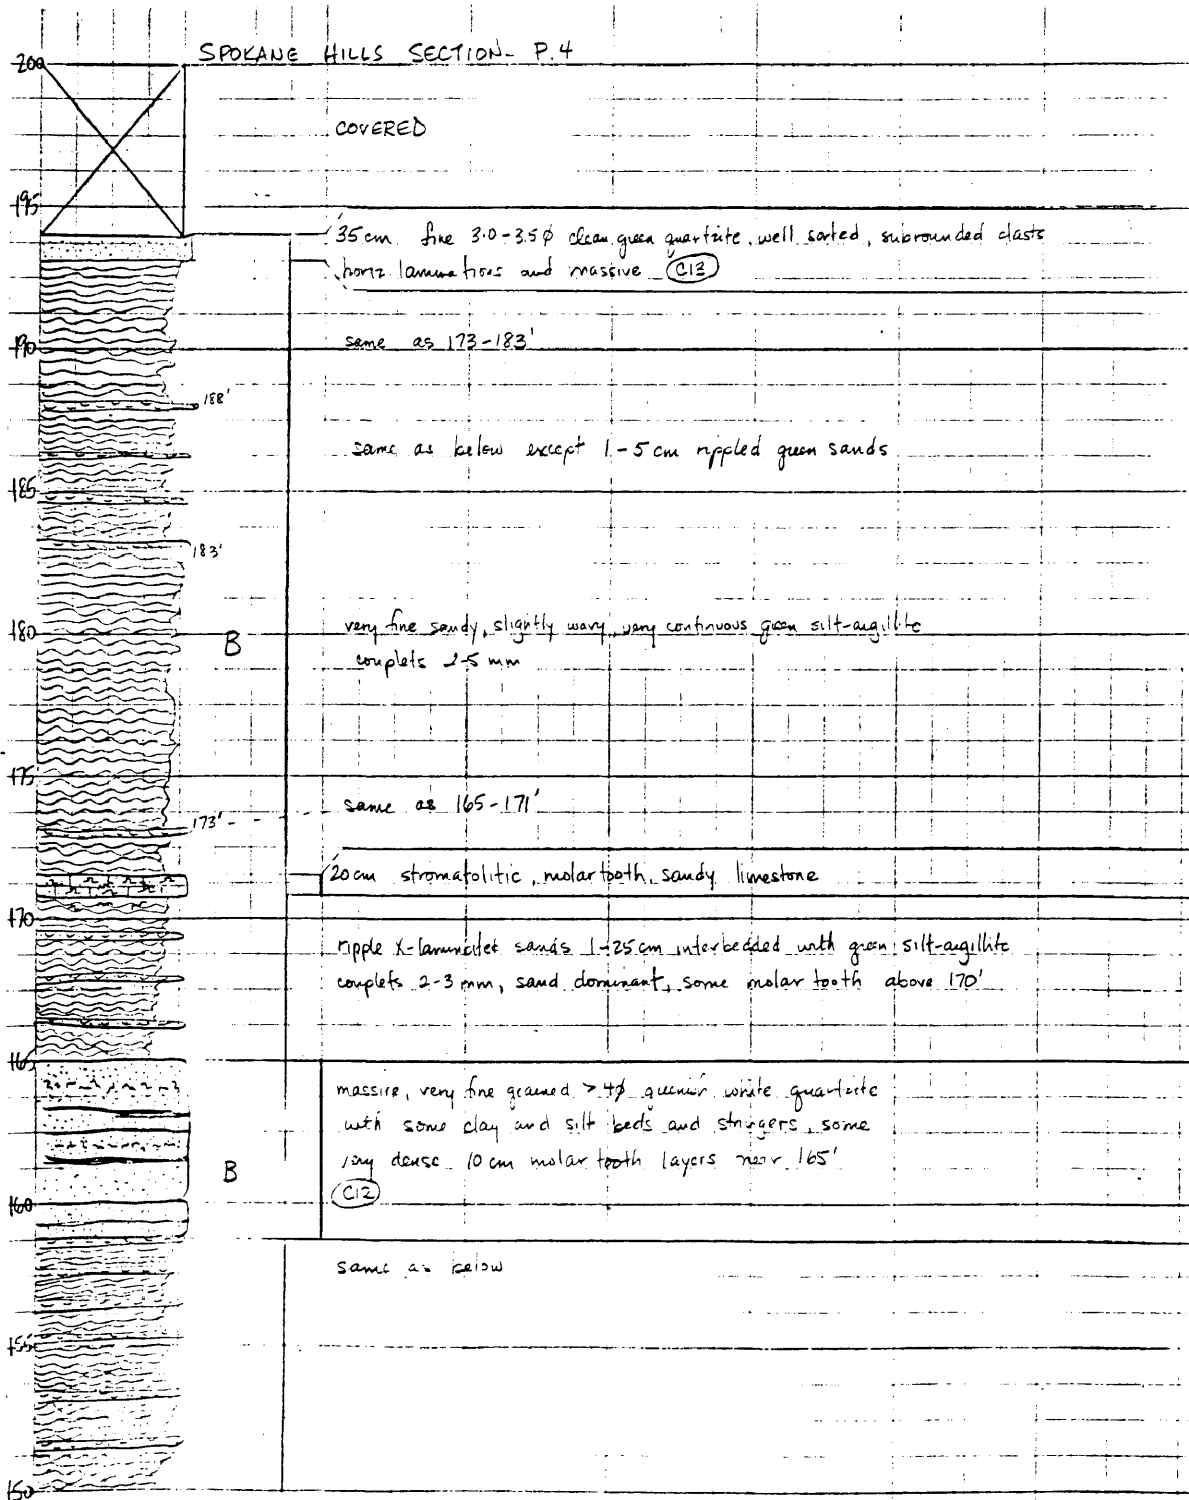 SPOKANE HILLS SECTION- P.4
200
COVERED
195
35cm fine 3.0-3.5φ clean green quartzite, well sorted, subrounded clasts
horiz laminations and massive C13
190
same as 173-183'
188'
same as below except 1-5 cm rippled green sands
185
183'
180
B
very fine sandy, slightly wavy, very continuous green silt-argillite
couplets 2-5 mm
175
same as 165-171'
173'
20cm stromatolitic, molar tooth, sandy limestone
170
ripple X-laminated sands 1-25cm interbedded with green silt-argillite
couplets 2-3 mm, sand dominant, some molar tooth above 170'
165
massive, very fine grained >4φ white quartzite
with some clay and silt beds and stringers, some
very dense 10 cm molar tooth layers near 165'
B
C12
160
same as below
155
150